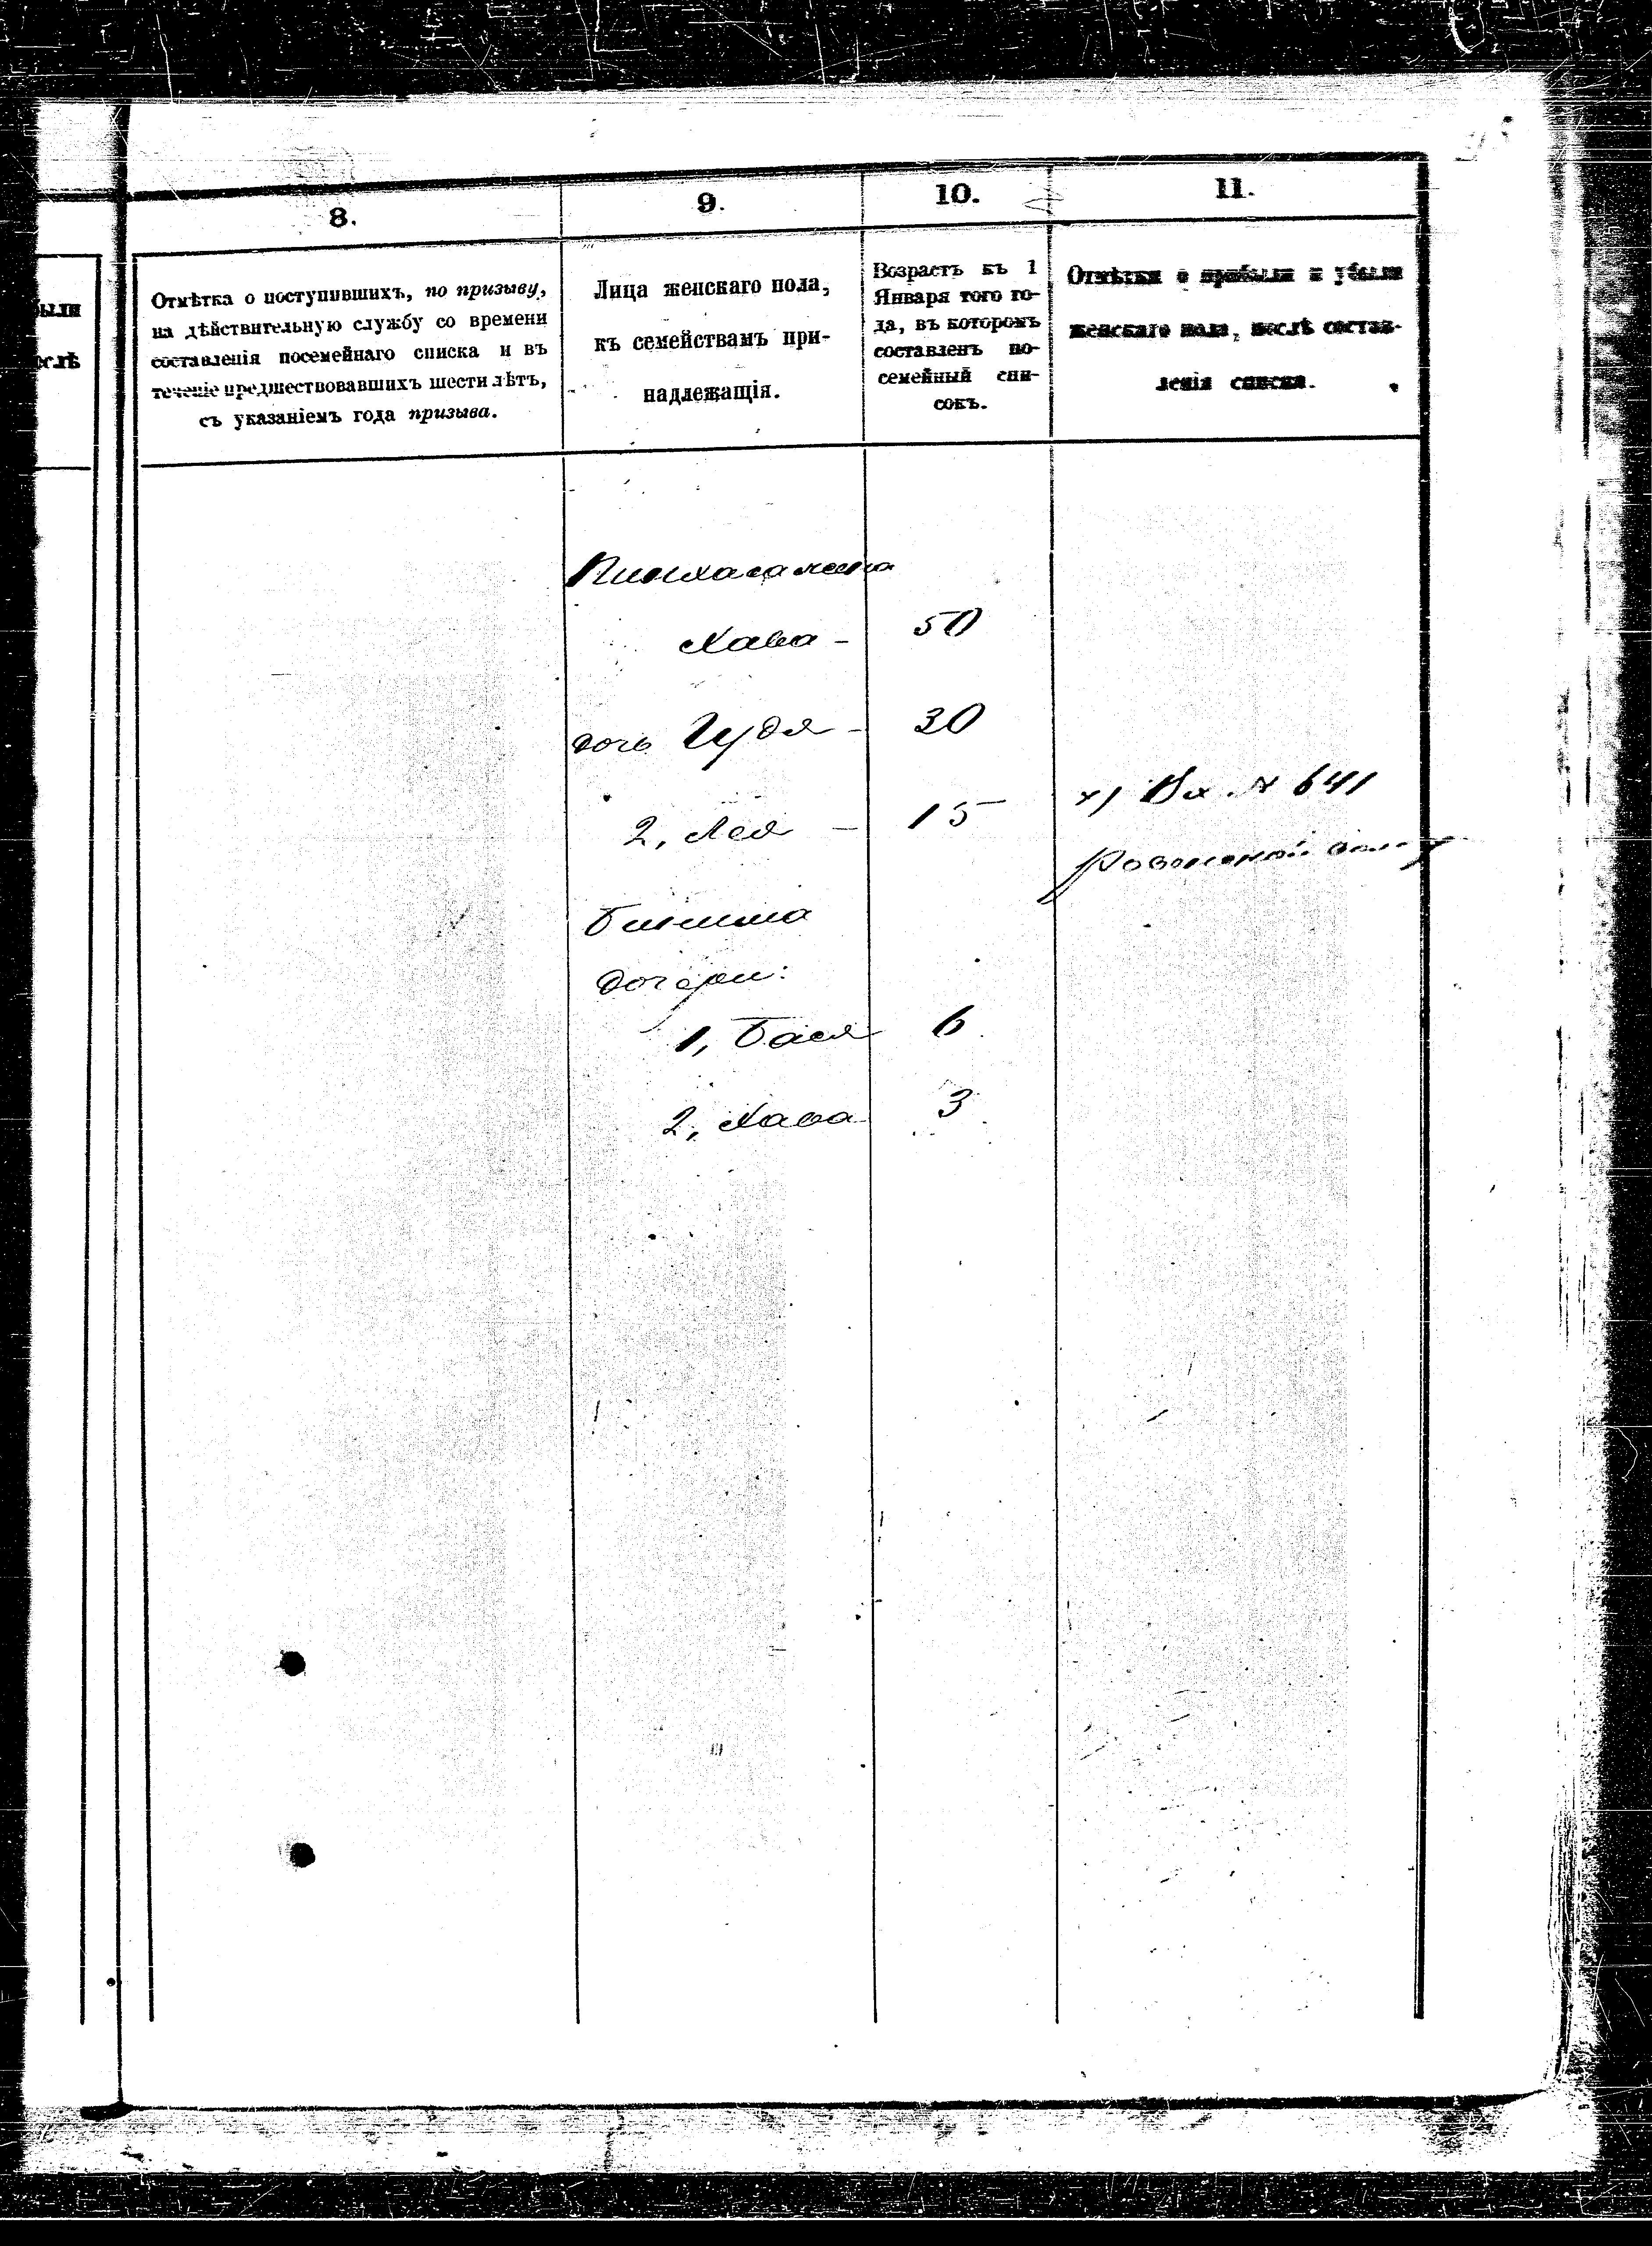 ыли
слѣ
8.
Отмѣтка о поступившихъ, по призыву,
на дѣйствительную службу со времени
составленія посемейнаго списка и въ
теченіе предшествовавшихъ шести лѣтъ,
съ указаніемъ года призыва.
9.
Лица женскаго пола,
къ семействамъ при-
надлежащія.
10.
Возрастъ къ 1
Января того го-
да, въ которомъ
составленъ по-
семейный спи-
сокъ.
11.
Отмѣтки о прибыли и убыли
женскаго пола, послѣ состав-
ленія списка.
Пинхаса жена
Хава - 50
дочь Гудя - 30
2, Лея - 15
х) Вх. № 641
Бенина
дочери:
1, Бася 6
2, Хава 3